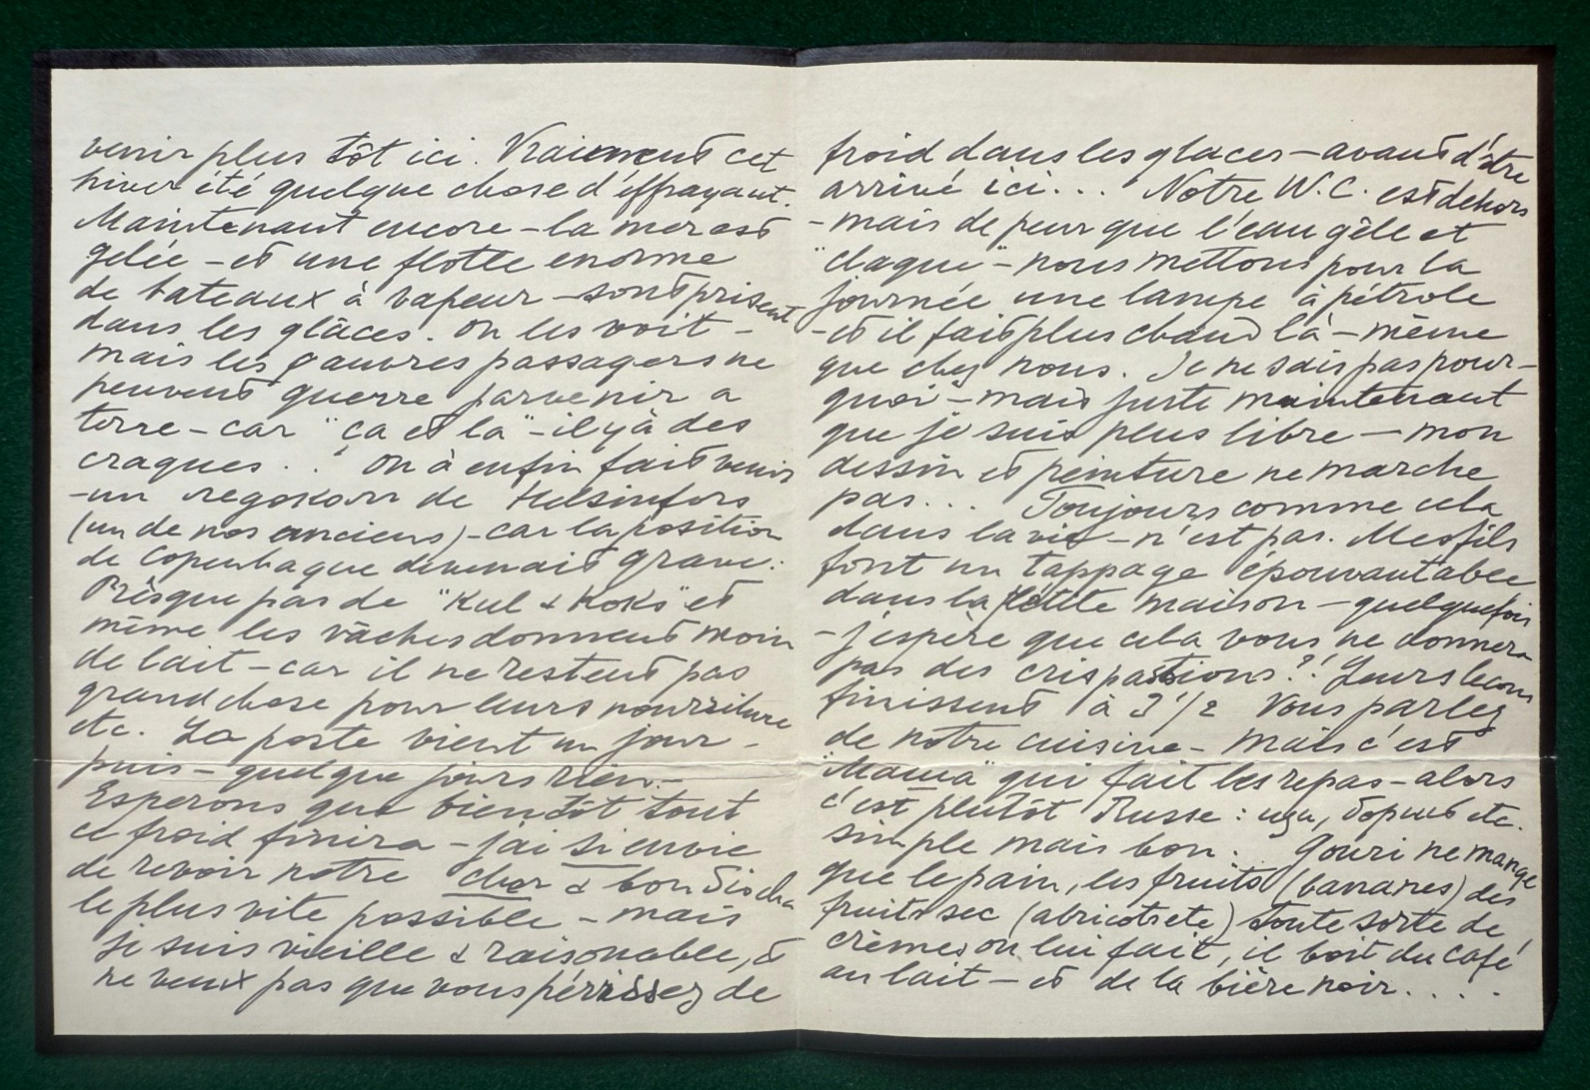 venir plus tôt ici. Vraiement cet
hiver été quelque chose d'éffrayant.
Maintenant encore – la mer est
gelée – et une flotte enorme
de bateaux à vapeur – sont prisent
dans les glâces. On les voit –
mais les pauvres passagers ne
peuvent guerre parvenir a
terre – car "ça et là" – il y à des
craques... On à enfin fait venir
– un ледоколъ de Helsinfors
(un de nos anciens) – car la position
de Copenhague devenait grave.
Prèsque pas de "Kul & Koks" et
même les vâches donnent moin
de lait – car il ne restent pas
grand chose pour leurs nourriture
etc. La poste vient un jour –
puis – quelque jours rien. –
Esperons que bientôt tout
ce froid finira – j'ai si envie
de revoir notre cher & bon Siocha
le plus vite possible – mais
je suis vieille & raisonable, &
ne veux pas que vous périssez de
froid dans les glaces – avant d'être
arrivé ici... Notre W.C. est dehors
– mais de peur que l'eau gèle et
"claque" – nous mettons pour la
journée une lampe à pétrole
– et il fait plus chaud là – même
que chez nous. Je ne sais pas pour-
quoi – mais juste maintenant
que je suis plus libre – mon
dessin et peinture ne marche
pas... Toujours comme cela
dans la vie – n'est pas. Mes fils
font un tappage épouvantable
dans la petite maison – quelquefois
– j'espère que cela vous ne donnera
pas des crispations?! Leurs lecons
finissent à 3 1/2 Vous parlez
de notre cuisine – mais c'est
"Mamá" qui fait les repas – alors
c'est plutôt Russe: щи, борщъ etc.
simple mais bon. Gouri ne mange
que le pain, les fruits (bananes) des
fruits sec (abricots etc) toute sorte de
crèmes on lui fait, il boit du café
au lait – et de la bière noir....